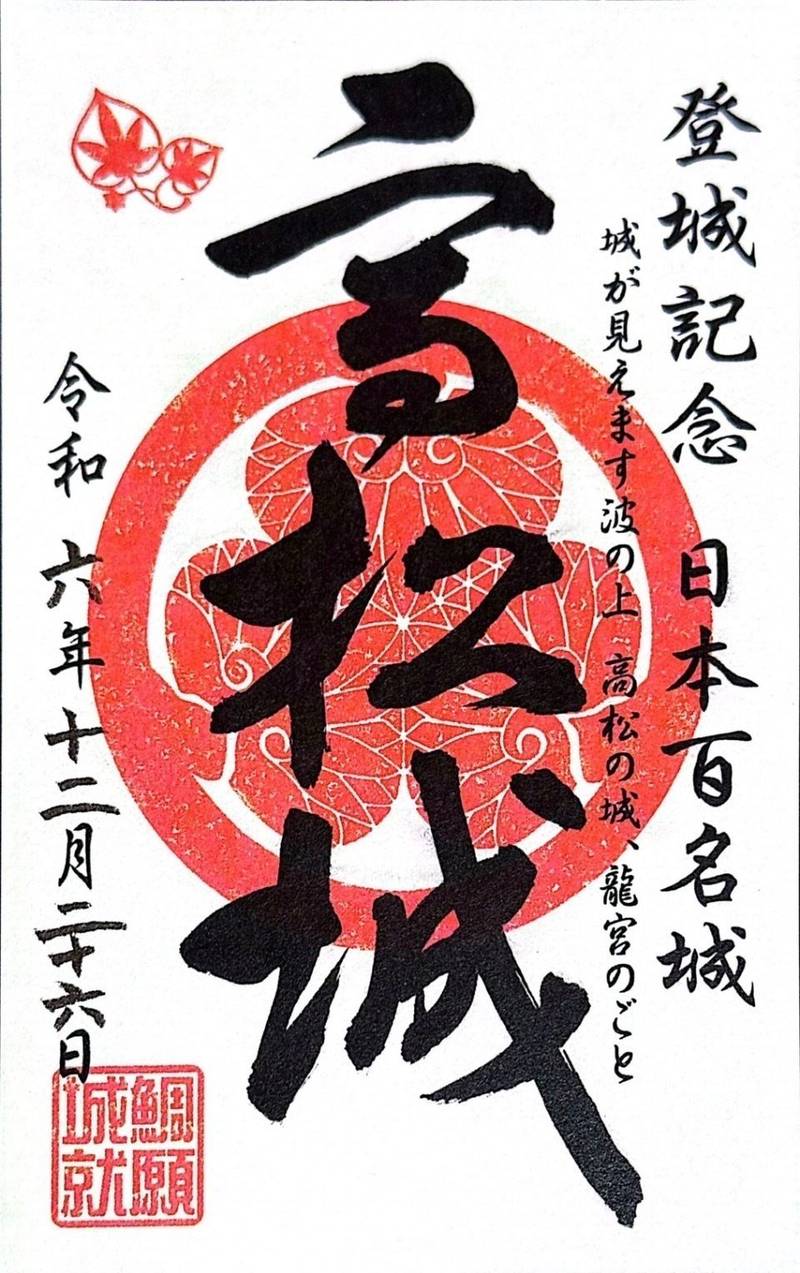 登城記念 日本百名城
城が見えます波の上 高松の城、龍宮のごと
高松城
令和 六年十二月二十六日
鯛願
城就